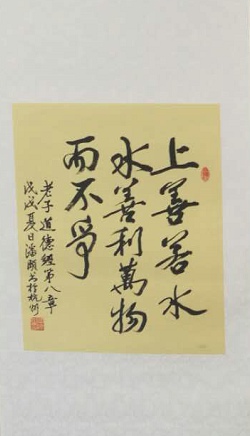 上善若水
水善利萬物
而不爭
老子道德經第八章
戊戌夏日潘頤書於杭州